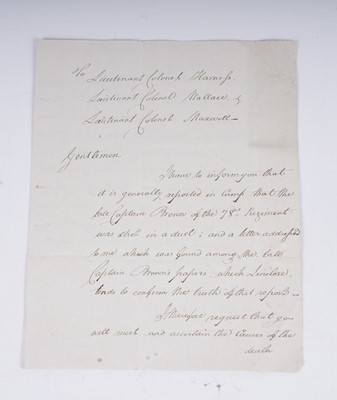 To Lieutenant Colonel Harness
Lieutenant Colonel Wallace, &
Lieutenant Colonel Maxwell —
Gentlemen
I have to inform you that
it is generally reported in Camp that the
late Captain Brown of the 78th Regiment
was shot in a duel; and a letter addressed
to me which was found among the late
Captain Brown's papers, which I inclose,
tends to confirm the truth of that report —
I therefore request that you
will meet and ascertain the causes of the
death